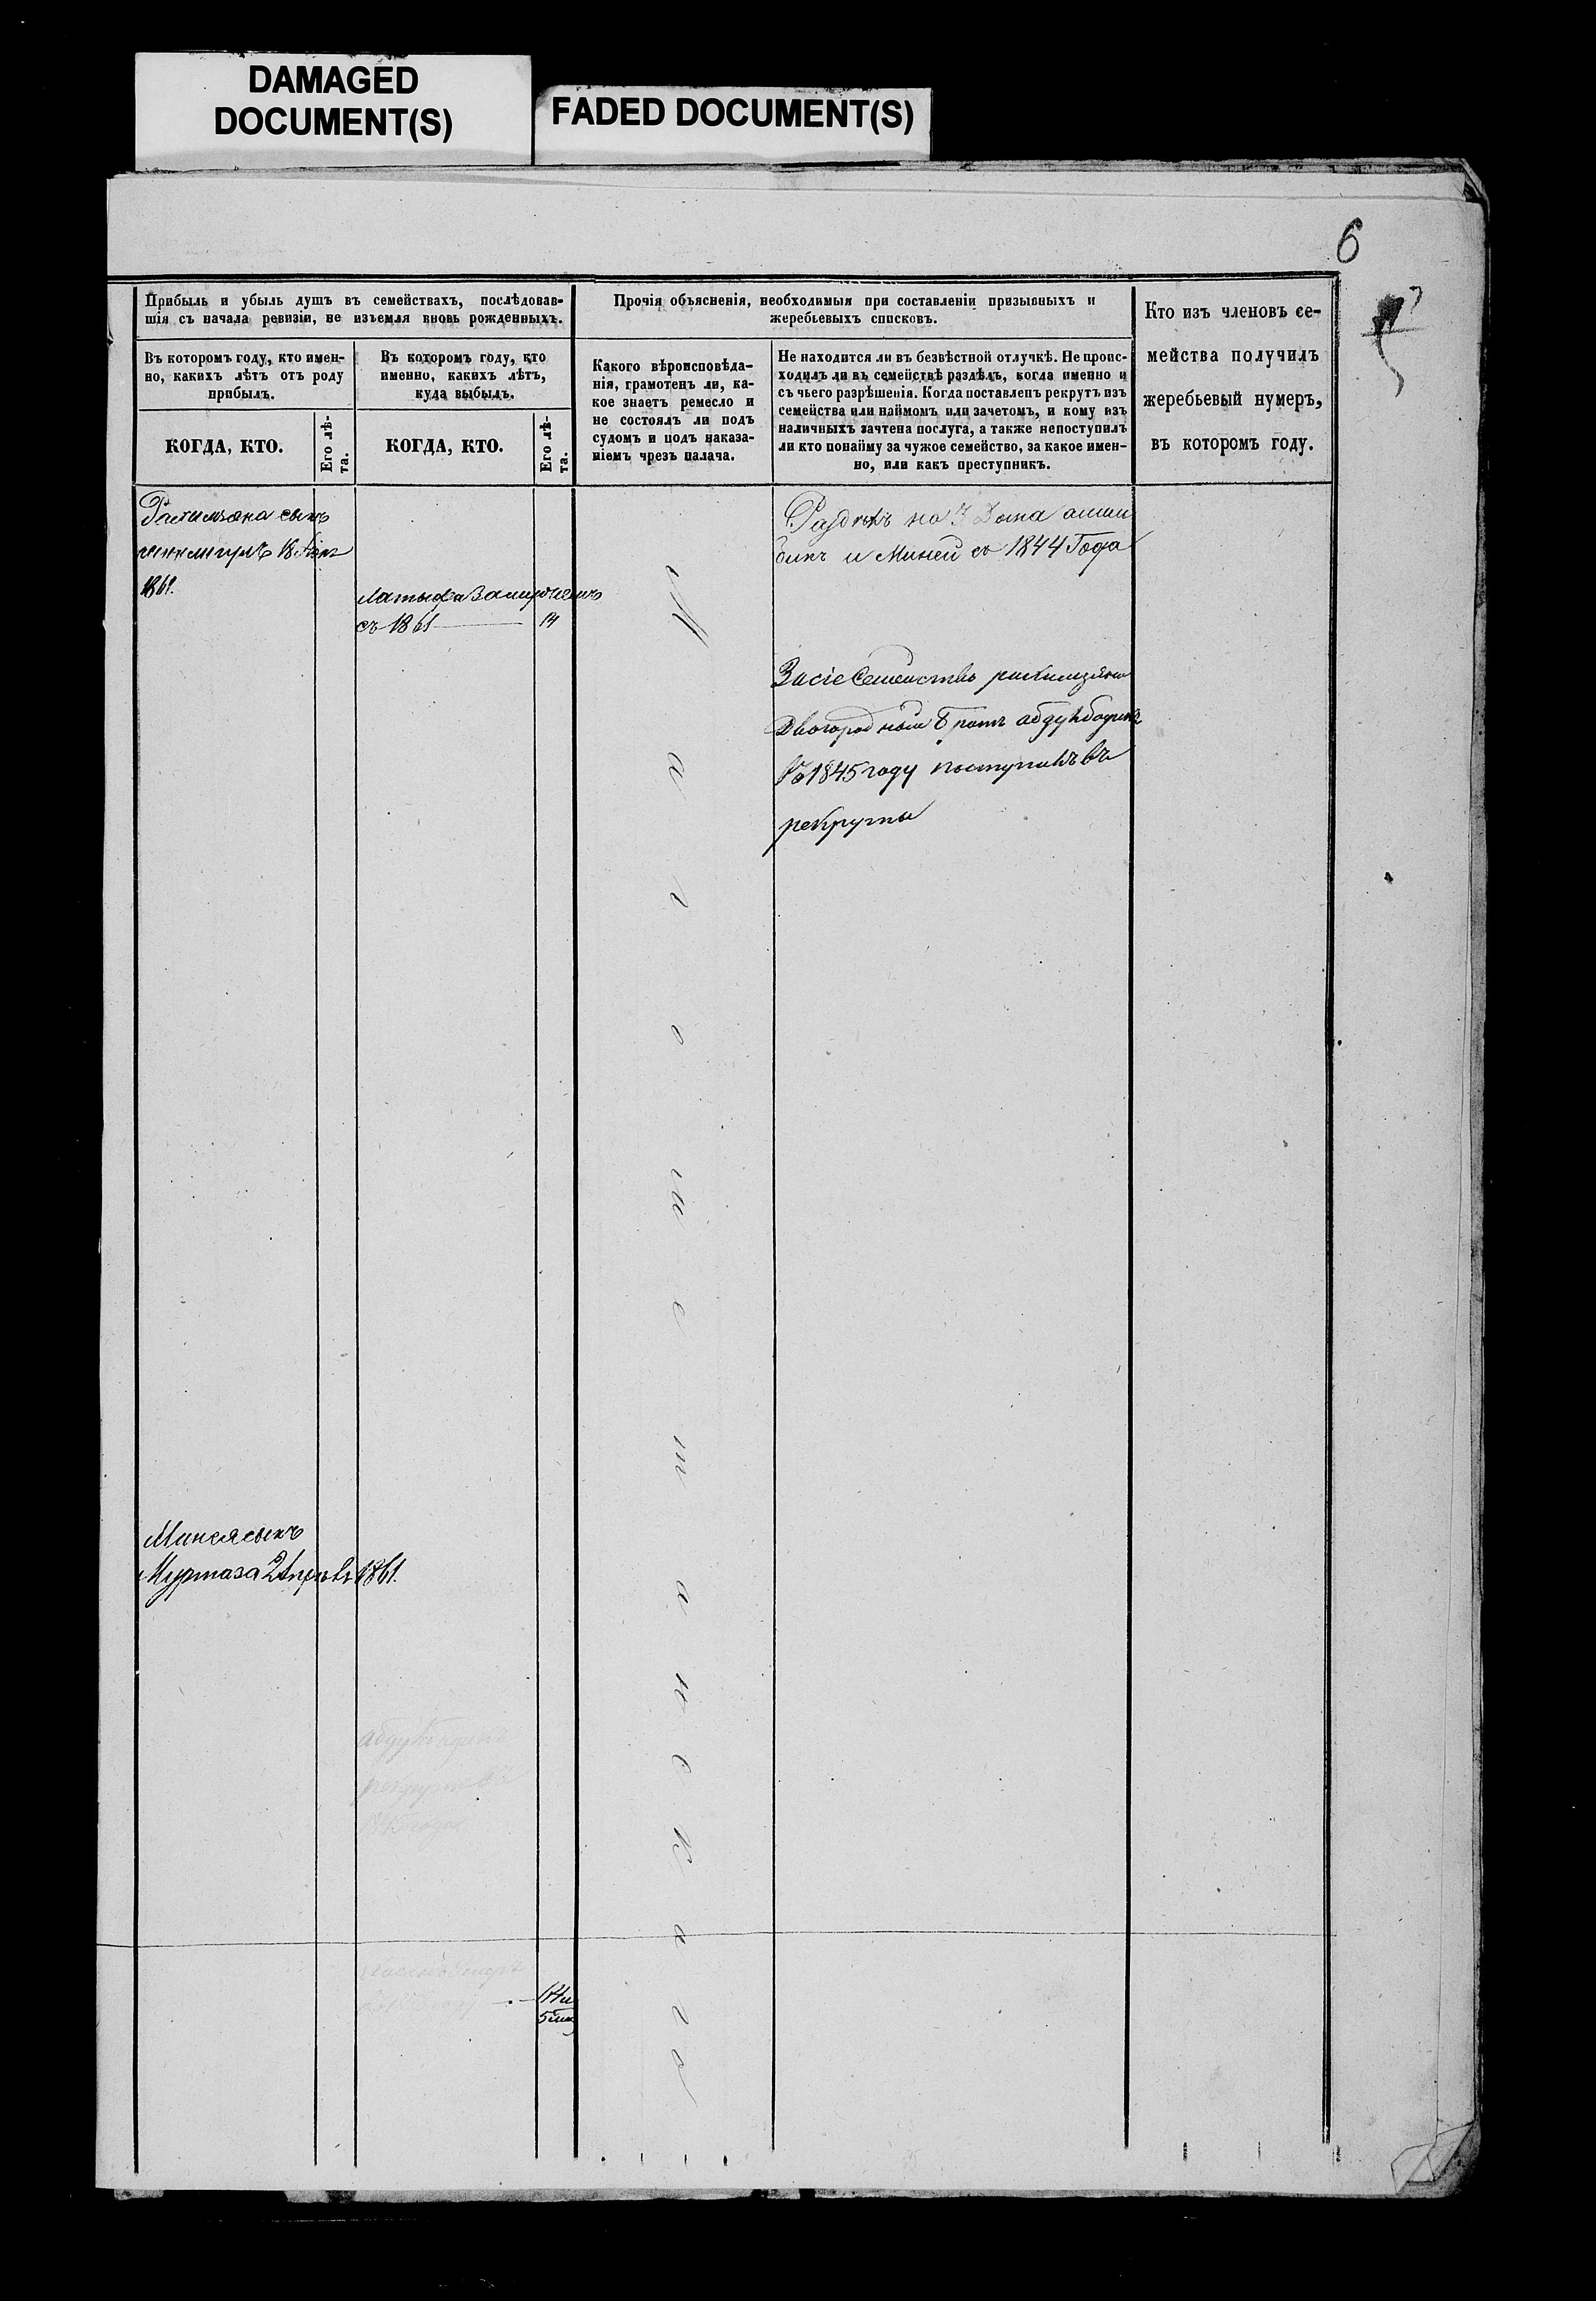 DAMAGED
DOCUMENT(S)
FADED DOCUMENT(S)
6
Прибыль и убыль душъ въ семействахъ, послѣдовав-
шія съ начала ревизіи, не изъемля вновь рожденныхъ.
Прочія объясненія, необходимыя при составленіи призывныхъ и
жеребьевыхъ списковъ.
Кто изъ членовъ се-
мейства получилъ
жеребьевый нумеръ,
въ которомъ году.
Въ которомъ году, кто имен-
но, какихъ лѣтъ отъ роду
прибылъ.
Въ которомъ году, кто
именно, какихъ лѣтъ,
куда выбылъ.
Какого вѣроисповѣда-
нія, грамотенъ ли, ка-
кое знаетъ ремесло и
не состоялъ ли подъ
судомъ и подъ наказа-
ніемъ чрезъ палача.
Не находится ли въ безвѣстной отлучкѣ. Не проис-
ходилъ ли въ семействѣ раздѣлъ, когда именно и
съ чьего разрѣшенія. Когда поставленъ рекрутъ изъ
семейства или наймомъ или зачетомъ, и кому изъ
наличныхъ зачтена послуга, а также непоступилъ
ли кто понайму за чужое семейство, за какое имен-
но, или какъ преступникъ.
КОГДА, КТО.
Его лѣ-
та.
КОГДА, КТО.
Его лѣ-
та.
сынъ
18
1861.
Раздѣлъ на 3 Дома
и Миней съ 1844 Года
Латыфа
съ 1861 14
Магометанскаго
За сіе Семейство
Двоюродный Братъ абдулбадикъ
въ 1845 году поступилъ въ
рекруты
Минея сынъ
Муртаза 2 Апрѣль 1861.
абдулбадикъ